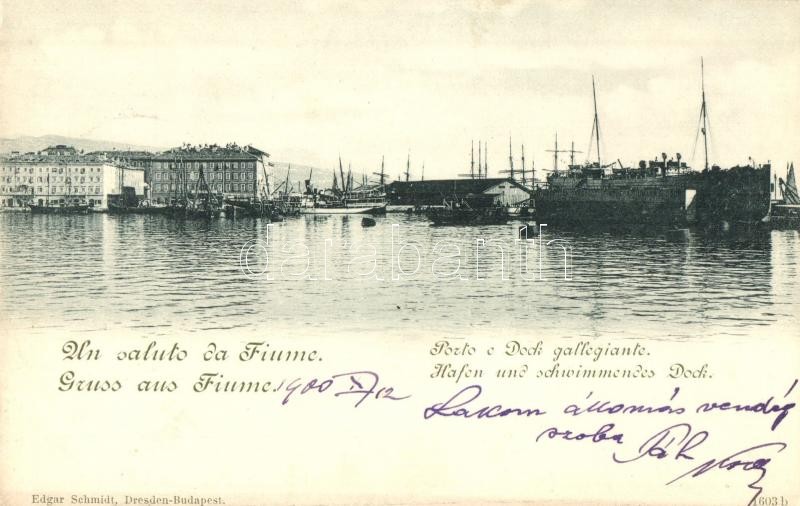 darabanth
Un saluto da Fiume.
Gruss aus Fiume.
Porto e Dock gallegiante.
Hafen und schwimmendes Dock.
1900 12
Lakom állomás vendég
szoba Pál
Edgar Schmidt, Dresden-Budapest.
1603 b